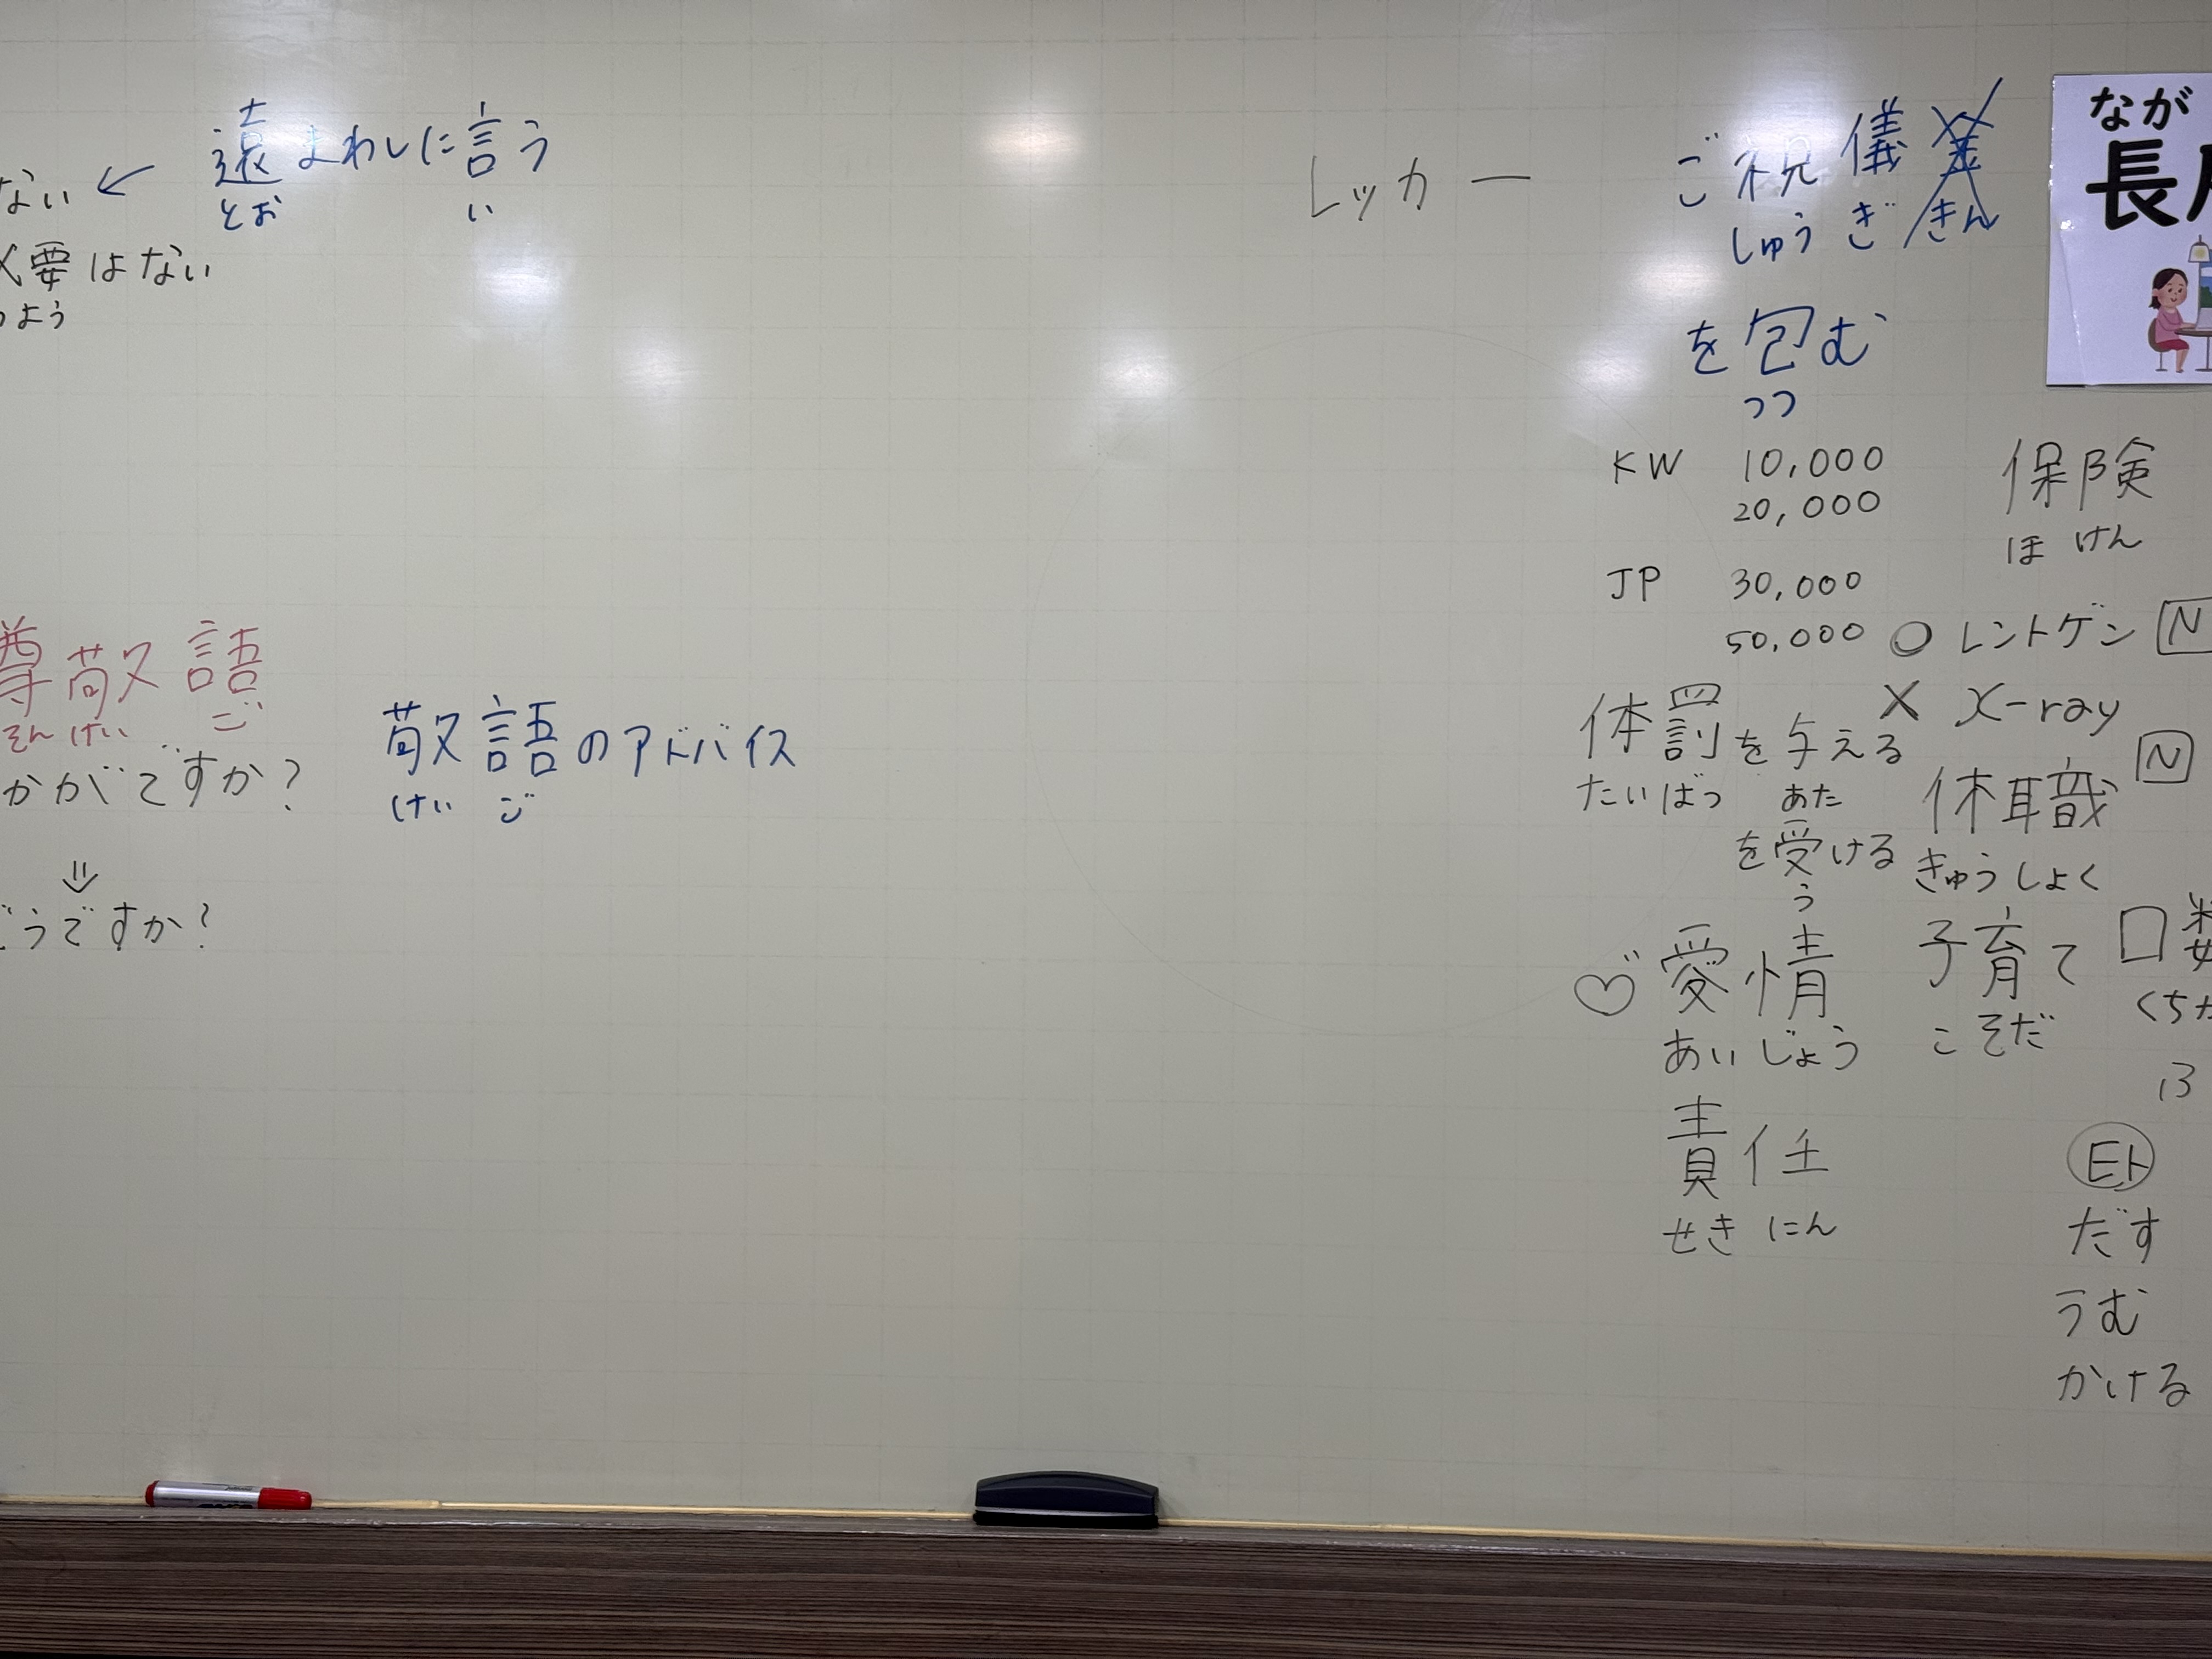 遠まわしに言う
とお い
ない ←
要はない
よう
尊敬語
そん けい ご
かがですか?
⇓
うですか?
敬語のアドバイス
けい ご
レッカー
ご祝儀金
しゅう ぎ きん
を包む
つつ
KW 10,000
20,000
JP 30,000
50,000
体罰を与える
たいばつ あた
を受ける
う
♡ 愛情
あい じょう
責任
せき にん
なが
長
保険
ほ けん
○ レントゲン N
× X-ray
休職 N
きゅうしょく
子育て
こ そだ
口数
くち
だす
うむ
かける